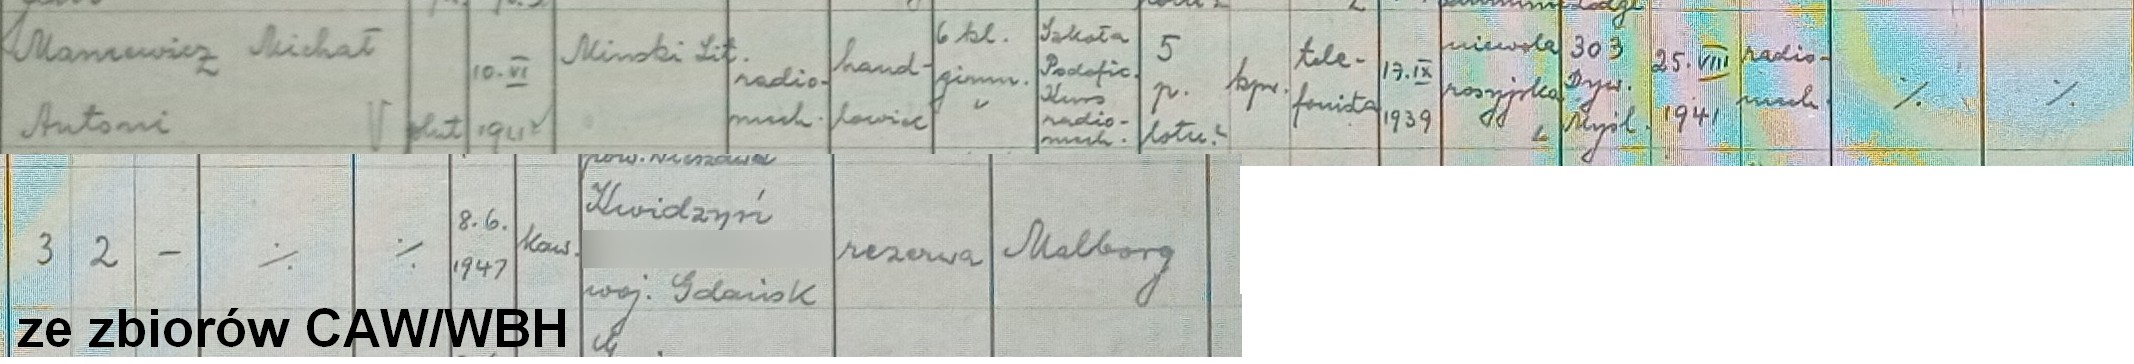 Maniewicz Michał
Antoni
V plut
10.VI
Minski Lit.
radio-
mech.
hand-
lowiec
6 kl.
gimn.
Szkoła
Podofic.
Kurs
radio-
mech.
5
p.
lotn.
kpr.
tele-
fonista
17.IX
1939
niewola
rosyjska
303
Dyw.
Myśl.
25.VIII
1941
radio-
mech.
%
%
3 2 —
%
%
8.6.
1947
kaw.
Kwidzyń
woj. Gdańsk
rezerwa
Malborg
ze zbiorów CAW/WBH